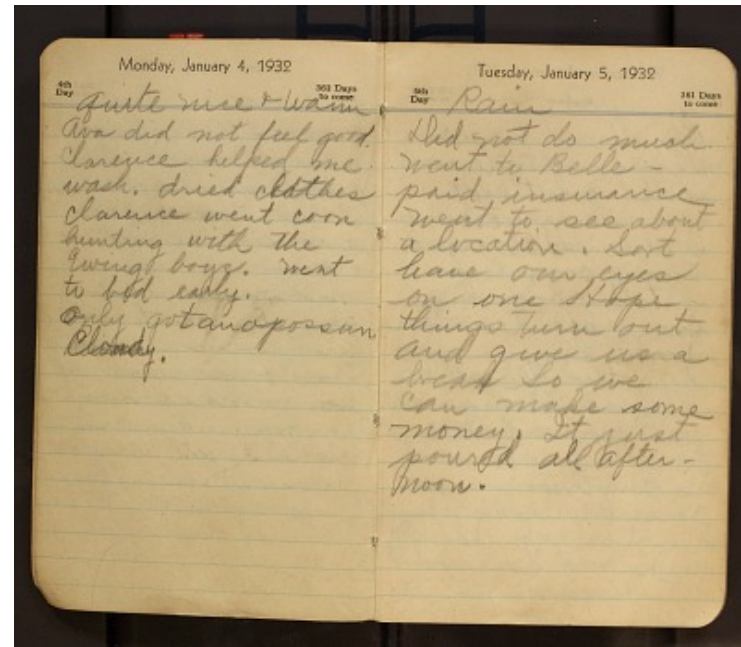 Monday, January 4, 1932
4th
Day
361 Days
to come
Quite nice & Warm
Ava did not feel good.
Clarence helped me
wash. dried clothes
Clarence went coon
hunting with the
Ewing boys. Went
to bed early.
Only got an opossum
Cloudy.
Tuesday, January 5, 1932
5th
Day
361 Days
to come
Rain
Did not do much.
went to Belle -
paid insurance
went to see about
a location. Sort
have our eyes
on one Hope
things turn out
and give us a
break So we
can make some
money. It just
poured all after-
noon.